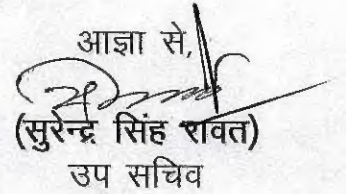 आज्ञा से,
(सुरेन्द्र सिंह रावत)
उप सचिव